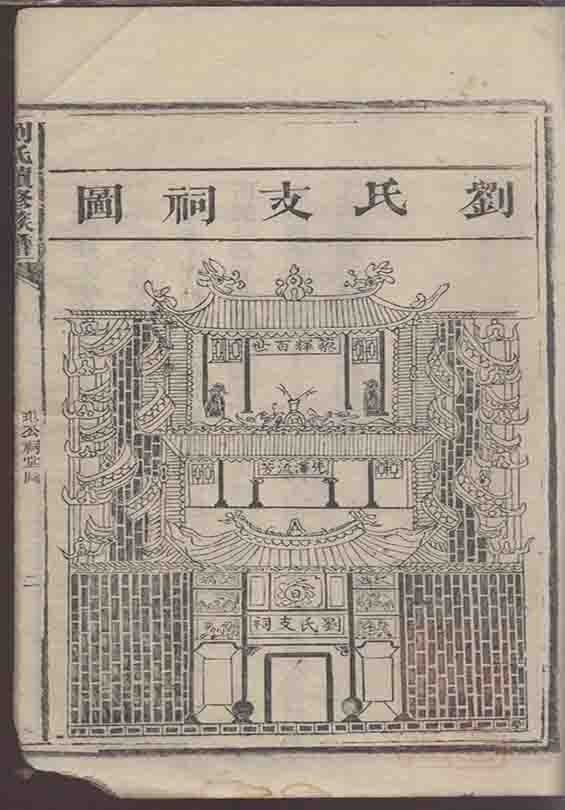 劉氏支祠圖
輝百世
澤流芳
劉氏支祠
劉氏續修族譜
公祠堂圖
二